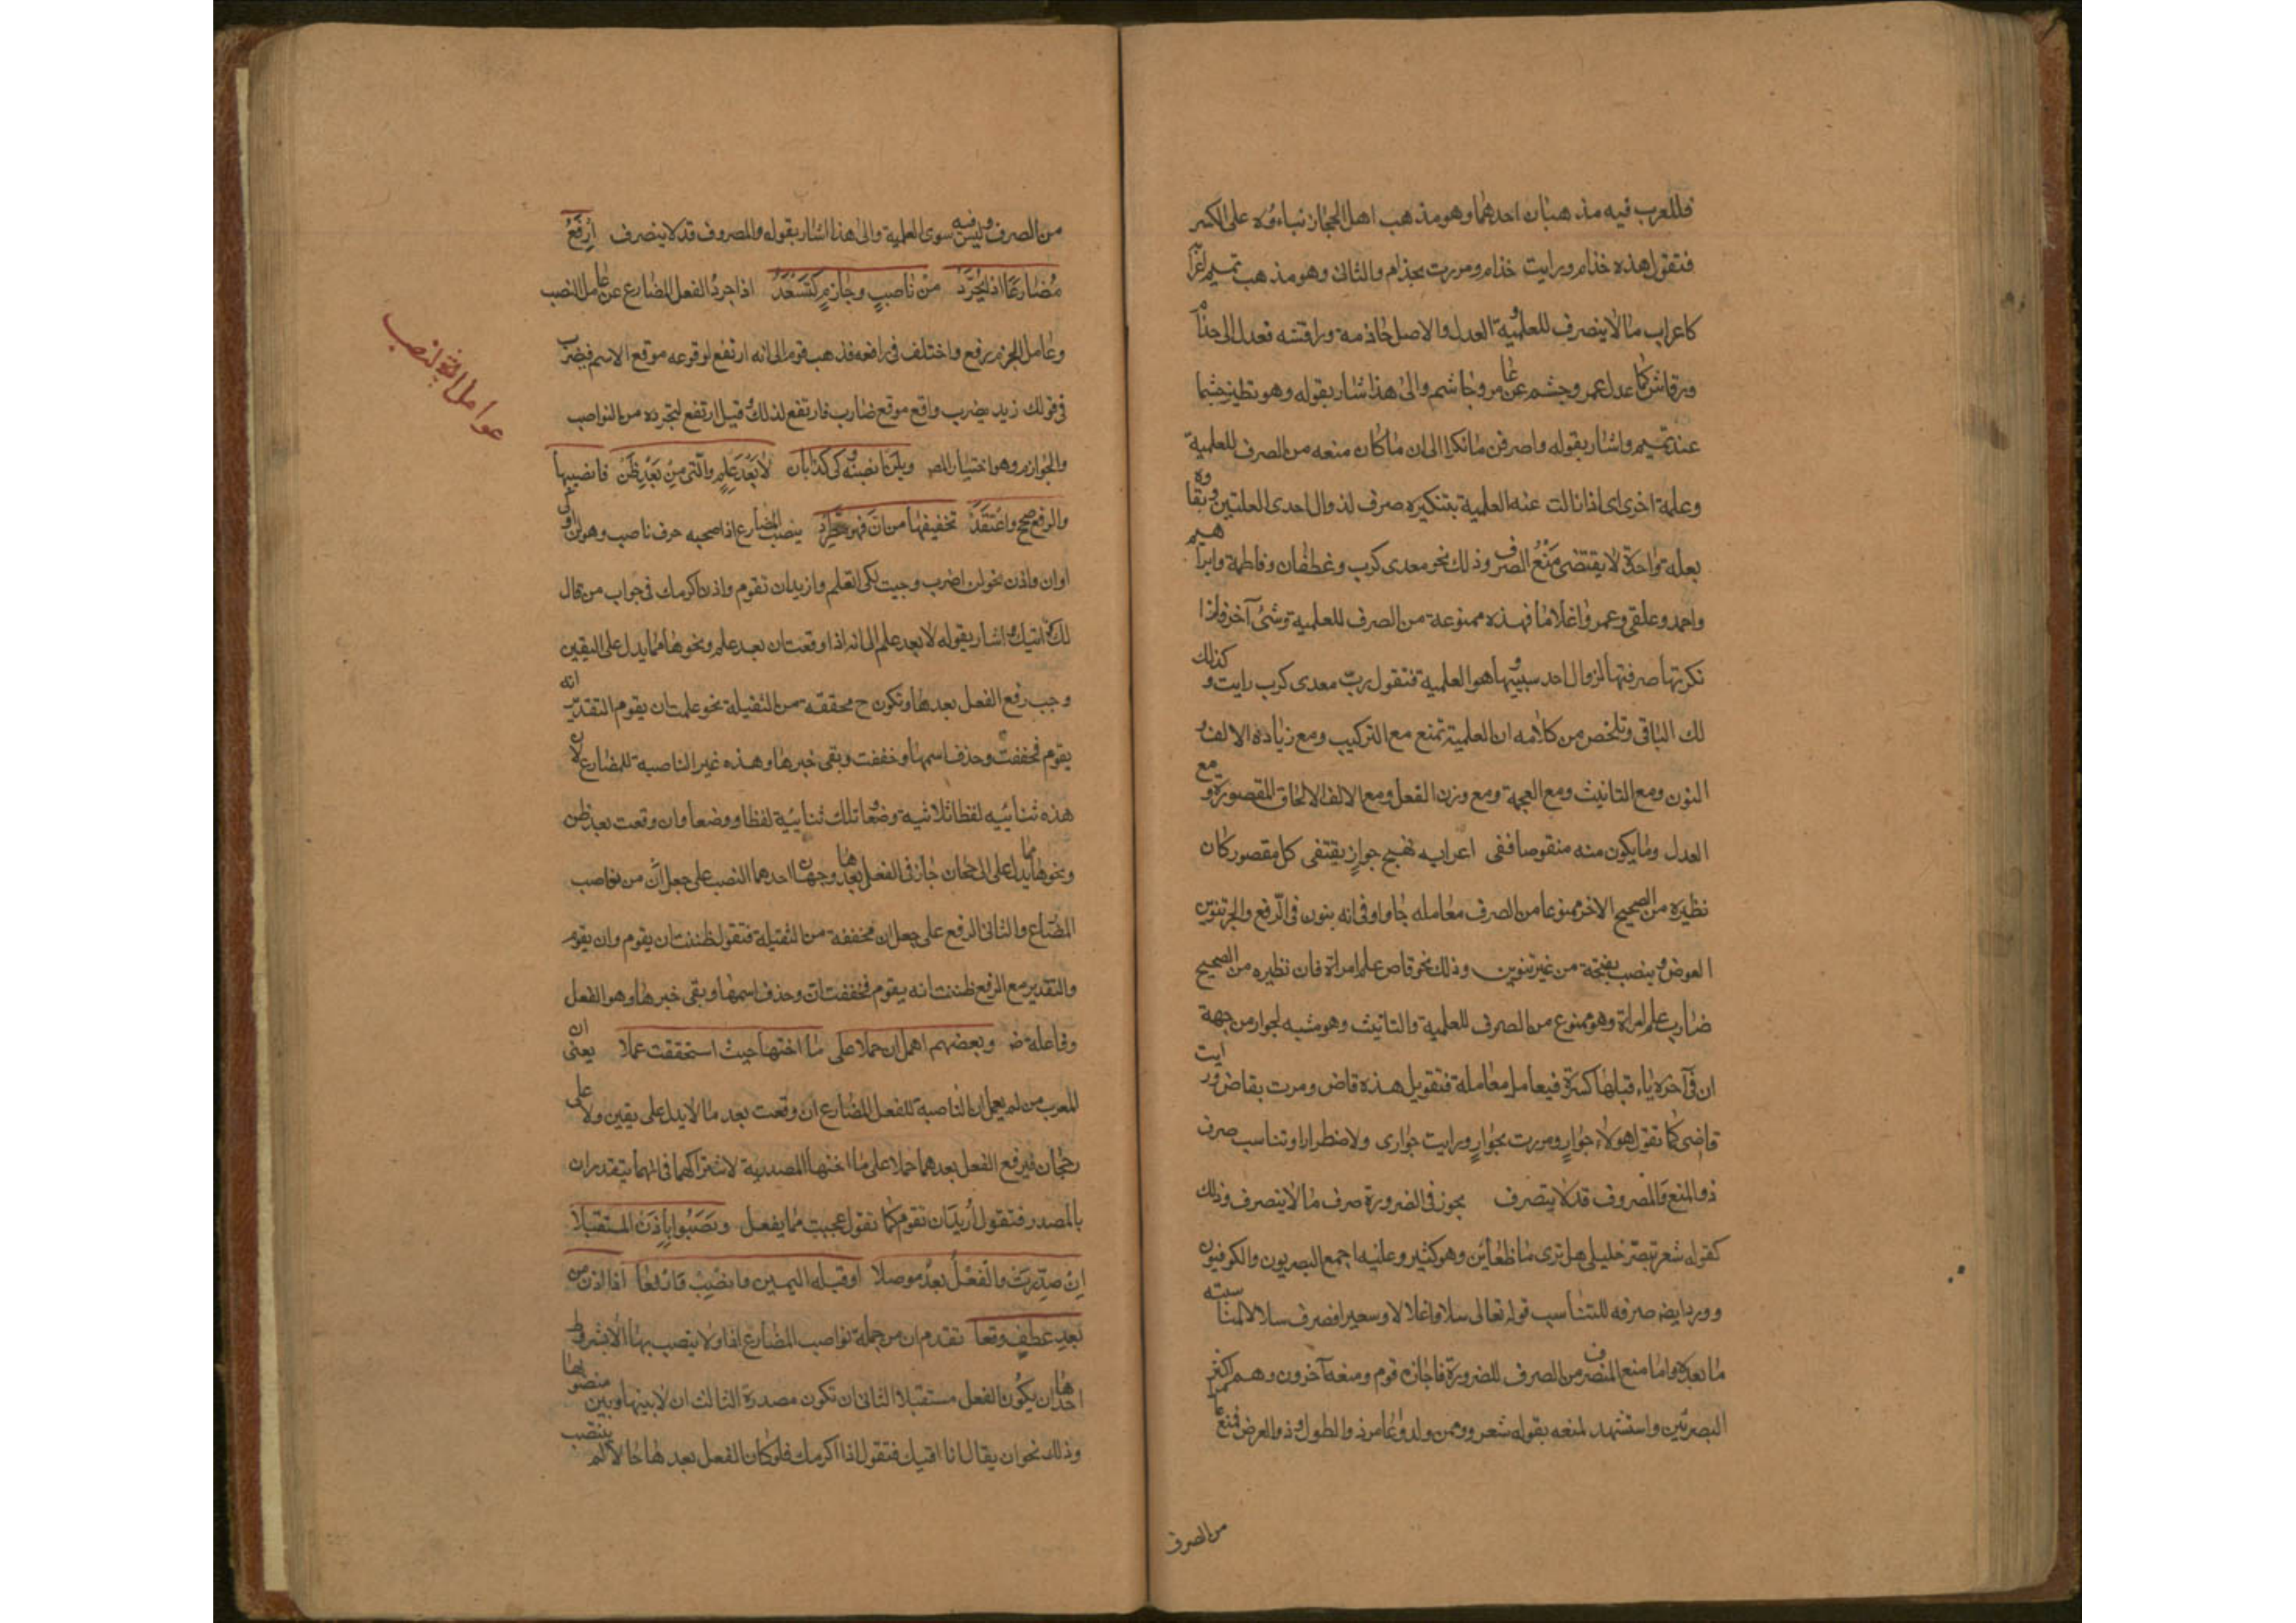 فللعرب فيه مذهبان احدهما وهو مذهب اهل الحجاز بناءه على الكسر
فتقول هذه خذام ورايت خذام ومررت بخذام والثانى وهو مذهب تميم
كاعراب ما لا ينصرف للعلمية والعدل والاصل حاذمة وراقشه فعدل الى حذام
ورقاش كما عدل عمر وجشم عن عامر وجاشم والى هذا اشار بقوله وهو نظير جشما
عند تميم واشار بقوله واصرفن ما نكرا الى ان ما كان منعه من الصرف للعلمية
وعلة اخرى اى اذا زالت عنه العلمية بتنكيره صرف لزوال احدى العلتين وبقاوه
بعلة واحدة لا يقتضى منع الصرف وذلك نحو معدى كرب وغطفان وفاطمة وابراهيم
واحمد وعلقى وعمر واعلاما فهذه ممنوعة من الصرف للعلمية وشئ آخر فاذا
نكرتها صرفتها لزوال احد سببيها وهو العلمية فتقول رب معدى كرب رايت وكذلك
لك الباقى وتلخص من كلامه ان العلمية تمنع مع التركيب ومع زيادة الالف و
النون ومع التانيث ومع العجمة ومع وزن الفعل ومع الالف الالحاق المقصورة ومع
العدل وما يكون منه منقوصا ففى اعرابه نهج جوارٍ يقتفى كل مقصور كان
نظيره من الصحيح الاخر ممنوعا من الصرف معامله جاوا وفى انه ينون فى الرفع والجر تنوين
العوض وينصب بفتحة من غير تنوين وذلك نحو قاص علم امراة فان نظيره من الصحيح
ضارب علم امراة وهو ممنوع من الصرف للعلمية والتانيث وهو مشبه لجوار من جهة
ان فى آخره ياء قبلها كسرة فيعامل معاملة فتقول هذه قاض ومررت بقاض ورايت
قاضى كما تقول هولاء جوارٍ ومررت بجوارٍ ورايت جوارى ولاضطرار او تناسب صرف
ذو المنع والمصروف قد لا ينصرف يجوز فى الضرورة صرف ما لا ينصرف وذلك
كقوله شعر تبصر خليلى هل ترى من ظعاين وهو كثير وعليه اجمع البصريون والكوفيون
وورد ايضه صرفه للتناسب قوله تعالى سلاسلا واغلالا وسعيرا فصرف سلاسلا لمناسبته
ما بعده واما منع المنصرف من الصرف للضرورة فاجازه قوم ومنعه آخرون وهم اكثر
البصريين واستشهد لمنعه بقوله شعر وممن ولدوا عامر ذو الطول وذو العرض فمنع عامر
من الصرف
من الصرف وليس فيه سوى العلمية والى هذا اشار بقوله والمصروف قد لا ينصرف ارفع
مضارعا اذا يجرد من ناصب وجازم كتسعد اذا جرد الفعل المضارع عن عامل النصب
وعامل الجزم رفع واختلف فى رافعه فذهب قوم الى انه ارتفع لوقوعه موقع الاسم فيضرب
فى قولك زيد يضرب واقع موقع ضارب فارتفع لذلك وقيل ارتفع لتجرده من النواصب
والجوازم وهو اختيار المصـ وبلن انصبه وكى كذا بان لا بعد علم والتى من بعد ظن فانصب بها
والرفع صحح واعتقد تخفيفها من ان فهو مطرد ينصب المضارع اذا صحبه حرف ناصب وهو لن او كى
او ان واذن نحو لن اضرب وجيت لكى اتعلم واريد ان تقوم واذن اكرمك فى جواب من قال
لك اتيك واشار بقوله لا بعد علم الى انه اذا وقعت ان بعد علم ونحوها مما يدل على اليقين
وجب رفع الفعل بعدها وتكون ح محففة من الثقيلة نحو علمت ان يقوم التقدير انه
يقوم فخففت وحذف اسمها وخففت وبقى خبرها وهذه غير الناصبة للمضارع لان
هذه ثنائيه لفظا ثلاثية وضعا وتلك ثنائية لفظا ووضعا وان وقعت بعد ظن
ونحوها مما يدل على الرجحان جاز فى الفعل بعدها وجهان احدهما النصب على جعل ان من نواصب
المضارع والثانى الرفع على جعل ان مخففة من الثقيلة فتقول ظننت ان يقوم وان يقوم
والتقدير مع الرفع ظننت انه يقوم فخففت ان وحذف اسمها وبقى خبرها وهو الفعل
وفاعله ض وبعضهم اهمل ان حملا على ما اختها حيث استحقت عملا يعنى ان
للعرب من لم يعمل ان الناصبة للفعل المضارع ان وقعت بعد ما لا يدل على يقين ولا على
رجحان فيرفع الفعل بعدهما حملا على ما اختها المصدرية لاشتراكهما فى انهما يتقدران
بالمصدر فتقول اريد ان تقوم كما تقول عجبت مما يفعل ونصبوا باذن المستقبلا
ان صدرت والفعل بعد موصلا او قبله اليمين وانصب وارفعا اذا اذن من
بعد عطف وقعا تقدم ان من جملة نواصب المضارع اذا ولا ينصب بها الا بشروط
احدها ان يكون الفعل مستقبلا الثانى ان تكون مصدرة الثالث ان لا بينها وبين منصوبها
وذلك نحو ان يقال انا اتيك فتقول اذا اكرمك فلو كان الفعل بعدها حالا لم ينتصب
عوامل النصب